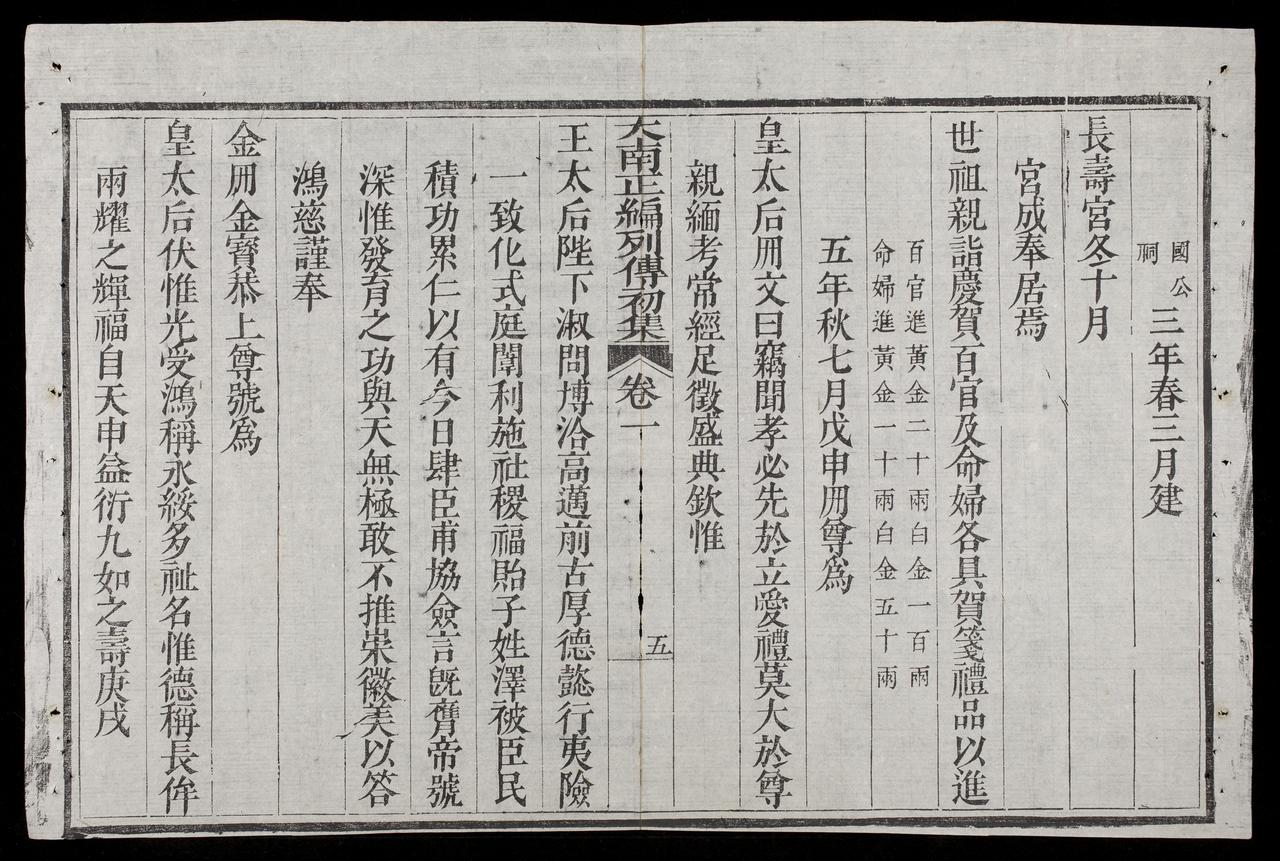 國公
祠
三年春三月建
長壽宮冬十月
宮成奉居焉
世祖親詣慶賀百官及命婦各具賀箋禮品以進
百官進黃金二十兩白金一百兩
命婦進黃金一十兩白金五十兩
五年秋七月戊申冊尊爲
皇太后冊文曰竊聞孝必先於立愛禮莫大於尊
親緬考常經足徵盛典欽惟
大南正編列傳初集
卷一
五
王太后陛下淑問博洽高邁前古厚德懿行夷險
一致化式庭闈利施社稷福貽子姓澤被臣民
積功累仁以有今日肆臣甫協僉言旣膺帝號
深惟發育之功與天無極敢不推崇徽美以答
鴻慈謹奉
金冊金寶恭上尊號爲
皇太后伏惟光受鴻稱永綏多祉名惟德稱長侔
兩耀之輝福自天申益衍九如之壽庚戌